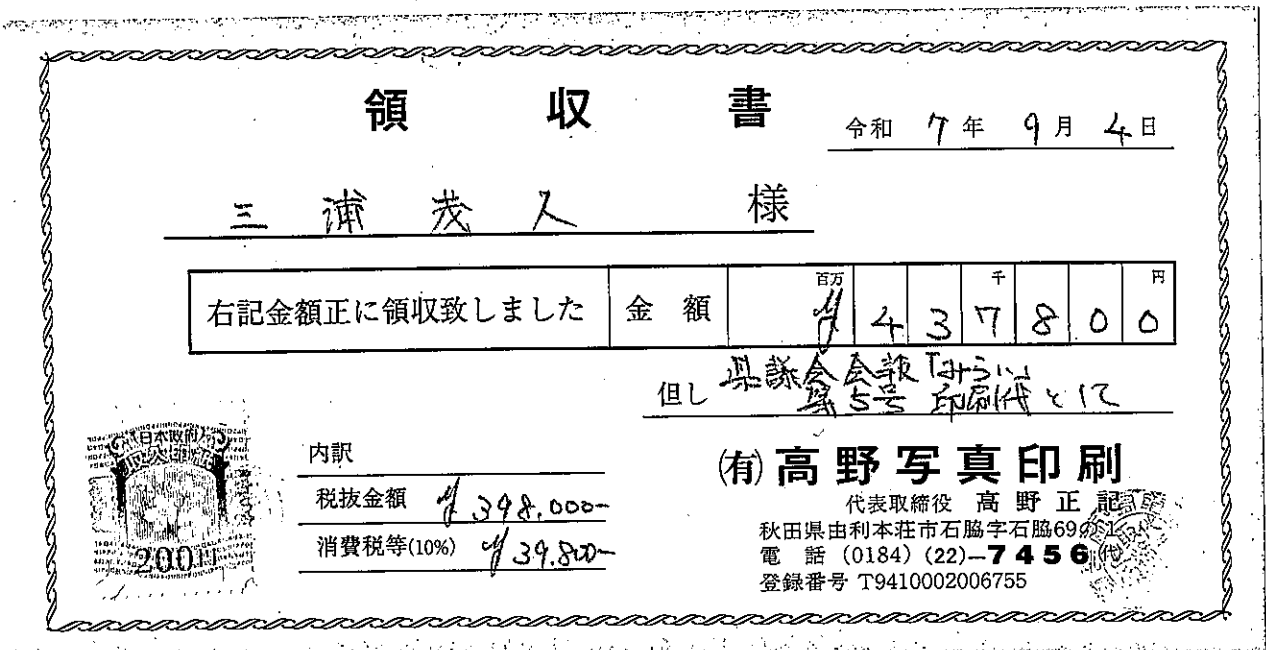 領収書
令和 7年 9月 4日
三浦茂人 様
右記金額正に領収致しました 金額 百万 千 円 ¥437800
但し 県議会会報「みらい」
第5号 印刷代として
日本政府
収入印紙
200円
内訳
税抜金額 ¥398.000-
消費税等(10%) ¥39.800-
(有)高野写真印刷
代表取締役 高野正記
秋田県由利本荘市石脇字石脇69の1
電話 (0184) (22)-7456 代
登録番号 T9410002006755